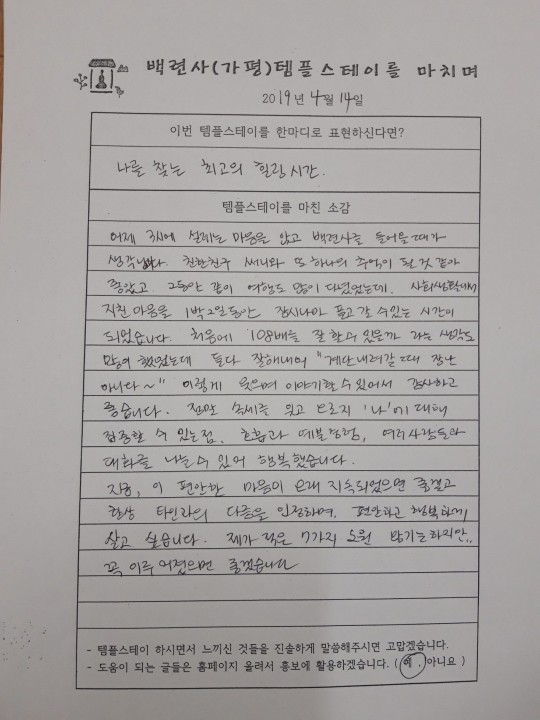 백련사(가평)템플스테이를 마치며
2019년 4월 14일
이번 템플스테이를 한마디로 표현하신다면?
나를 찾는 최고의 힐링시간.
템플스테이를 마친 소감
어제 3시에 설레는 마음을 안고 백련사를 들어올때가
생각납니다. 친한친구 써니와 또 하나의 추억이 될 것 같아
좋았고 그동안 같이 여행도 많이 다녔었는데. 사회생활에서
지친마음을 1박2일동안 잠시나마 풀고 갈 수 있는 시간이
되었습니다. 처음에 108배를 잘 할 수 있을까 라는 생각도
많이 했었는데 둘다 잘해내어 "계단내려갈때 장난
아니다~" 이렇게 웃으며 이야기할 수 있어서 감사하고
좋습니다. 정말 속세를 잊고 오로지 '나'에 대해
집중할 수 있는점, 호흡과 예불 송험, 여러사람들과
대화를 나눌 수 있어 행복했습니다.
지금, 이 편안한 마음이 오래 지속되었으면 좋겠고
항상 타인과의 다름을 인정하며. 편안하고 행복하게
살고 싶습니다. 제가 적은 7가지 소원 많기는하지만..
꼭 이루어졌으면 좋겠습니다
- 템플스테이 하시면서 느끼신 것들을 진솔하게 말씀해주시면 고맙겠습니다.
- 도움이 되는 글들은 홈페이지 올려서 홍보에 활용하겠습니다. ( 예 . 아니요 )